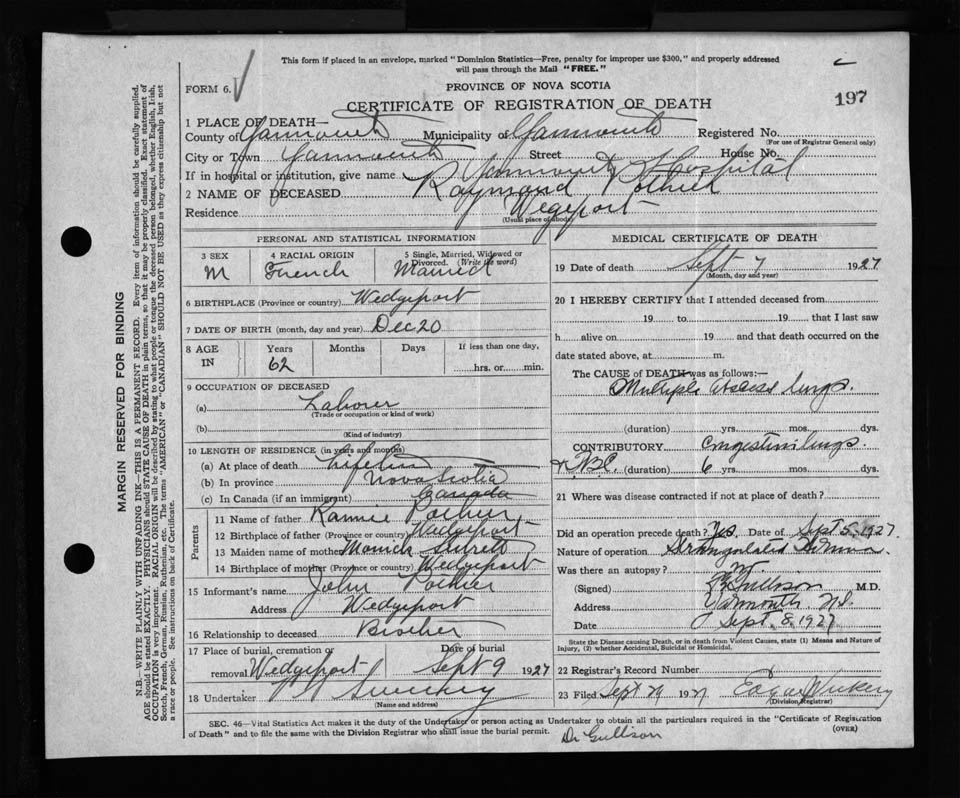 This form if placed in an envelope, marked "Dominion Statistics—Free, penalty for improper use $300," and properly addressed
will pass through the Mail "FREE."
FORM 6.
PROVINCE OF NOVA SCOTIA
CERTIFICATE OF REGISTRATION OF DEATH
197
1 PLACE OF DEATH—
County of Yarmouth Municipality of Yarmouth Registered No.
(For use of Registrar General only)
City or Town Yarmouth Street House No.
If in hospital or institution, give name Yarmouth Hospital
2 NAME OF DECEASED Raymond Pothier
Residence Wegeport
(Usual place of abode)
PERSONAL AND STATISTICAL INFORMATION
3 SEX M
4 RACIAL ORIGIN French
5 Single, Married, Widowed or Divorced. (Write the word) Married
6 BIRTHPLACE (Province or country) Wedgeport
7 DATE OF BIRTH (month, day and year) Dec 20
8 AGE IN Years Months Days If less than one day,
62 hrs. or min.
9 OCCUPATION OF DECEASED
(a) Laborer
(Trade or occupation or kind of work)
(b)
(Kind of industry)
10 LENGTH OF RESIDENCE (in years and months)
(a) At place of death Lifetime
(b) In province Nova Scotia
(c) In Canada (if an immigrant) Canada
Parents
11 Name of father Rannie Pothier
12 Birthplace of father (Province or country) Wedgeport
13 Maiden name of mother
14 Birthplace of mother (Province or country) Wedgeport
15 Informant's name John Pothier
Address Wedgeport
16 Relationship to deceased Brother
17 Place of burial, cremation or removal Wedgeport Date of burial Sept 9 1927
18 Undertaker Sweeney
(Name and address)
MEDICAL CERTIFICATE OF DEATH
19 Date of death Sept 7 1927
(Month, day and year)
20 I HEREBY CERTIFY that I attended deceased from
19 to 19 that I last saw
h alive on 19 and that death occurred on the
date stated above, at m.
The CAUSE of DEATH was as follows:—
Multiple abscess lungs.
(duration) yrs. mos. dys.
CONTRIBUTORY Congestion lungs.
(duration) 6 yrs. mos. dys.
21 Where was disease contracted if not at place of death?
Did an operation precede death? Yes Date of Sept 5, 1927.
Nature of operation Strangulated Hernia.
Was there an autopsy?
(Signed) Gullison M.D.
Address Yarmouth, N.S.
Date Sept. 8, 1927.
State the Disease causing Death, or in death from Violent Causes, state (1) Means and Nature of
Injury, (2) whether Accidental, Suicidal or Homicidal.
22 Registrar's Record Number
23 Filed Sept 29 1927 Edgar Vickery
(Division Registrar)
SEC. 46—Vital Statistics Act makes it the duty of the Undertaker or person acting as Undertaker to obtain all the particulars required in the "Certificate of Registration
of Death" and to file the same with the Division Registrar who shall issue the burial permit.
(OVER)
Dr Gullison
MARGIN RESERVED FOR BINDING
N.B. WRITE PLAINLY WITH UNFADING INK—THIS IS A PERMANENT RECORD. Every item of information should be carefully supplied.
AGE should be stated EXACTLY. PHYSICIANS should STATE CAUSE OF DEATH in plain terms, so that it may be properly classified. Exact statement of
OCCUPATION is very important. RACIAL ORIGIN will be described by stating to what people or tongue the deceased person belonged, whether English, Irish,
Scotch, French, German, Russian, Ruthenian, etc. The terms "AMERICAN" or "CANADIAN" SHOULD NOT BE USED as they express citizenship but not
a race or people. See instructions on back of Certificate.